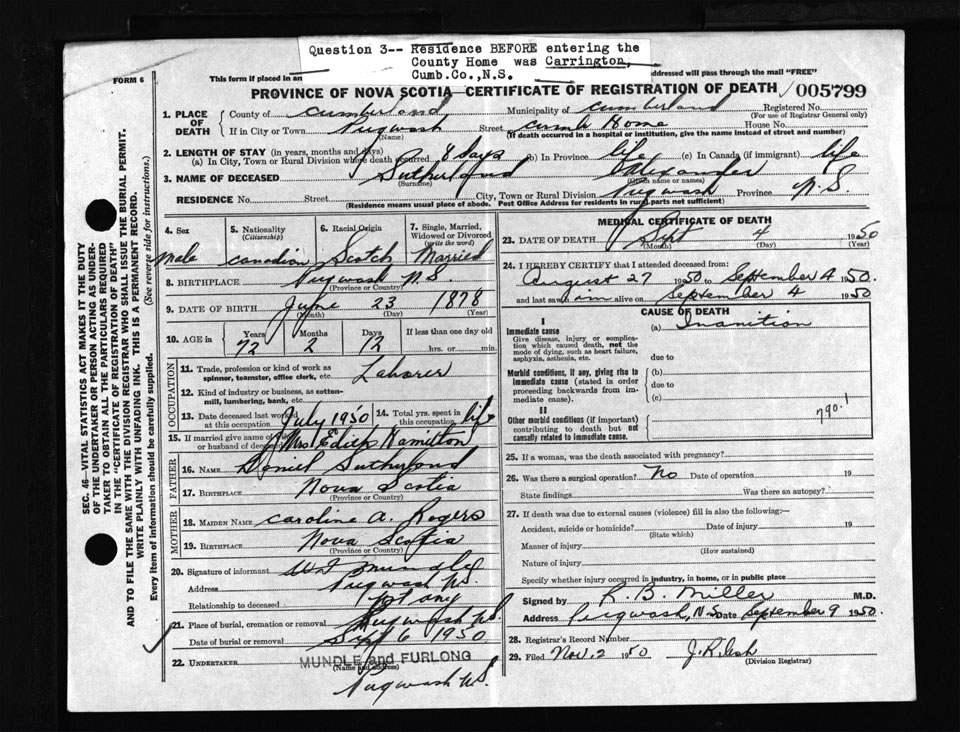 Question 3-- Residence BEFORE entering the
County Home was Carrington,
Cumb.Co.,N.S.
FORM 6
This form if placed in an
addressed will pass through the mail "FREE"
PROVINCE OF NOVA SCOTIA—CERTIFICATE OF REGISTRATION OF DEATH 005799
1. PLACE OF DEATH
County of Cumberland Municipality of Cumberland Registered No.
(For use of Registrar General only)
If in City or Town Pugwash Street Cumb Home House No.
(Name) (If death occurred in a hospital or institution, give the name instead of street and number)
2. LENGTH OF STAY (in years, months and days)
(a) In City, Town or Rural Division where death occurred 8 days (b) In Province life (c) In Canada (if immigrant) life
3. NAME OF DECEASED Sutherland Alexander
(Surname) (Given name or names)
RESIDENCE No. Street City, Town or Rural Division Pugwash Province N.S.
(Residence means usual place of abode. Post Office Address for residents in rural parts not sufficient)
4. Sex
male
5. Nationality
(Citizenship)
Canadian
6. Racial Origin
Scotch
7. Single, Married,
Widowed or Divorced
(write the word)
Married
8. BIRTHPLACE Pugwash N.S.
(Province or Country)
9. DATE OF BIRTH June 23 1878
(Month) (Day) (Year)
10. AGE in
Years Months Days If less than one day old
72 2 12 hrs. or min.
OCCUPATION
11. Trade, profession or kind of work as
spinner, teamster, office clerk, etc. Laborer
12. Kind of industry or business, as cotton-
mill, lumbering, bank, etc.
13. Date deceased last worked
at this occupation July 1950
14. Total yrs. spent in
this occupation life
15. If married give name of
or husband of deceased Mrs Edith Hamilton
FATHER
16. NAME Daniel Sutherland
17. BIRTHPLACE Nova Scotia
(Province or Country)
MOTHER
18. MAIDEN NAME Caroline A. Rogers
19. BIRTHPLACE Nova Scotia
(Province or Country)
20. Signature of informant Mundle
Address Pugwash N.S.
Relationship to deceased not any
21. Place of burial, cremation or removal Pugwash N.S.
Date of burial or removal Sept 6 1950
22. UNDERTAKER MUNDLE and FURLONG
(Name and address)
Pugwash N.S.
MEDICAL CERTIFICATE OF DEATH
23. DATE OF DEATH Sept 4 1950
(Month) (Day) (Year)
24. I HEREBY CERTIFY that I attended deceased from:
August 27 1950 to September 4 1950.
and last saw him alive on September 4 1950
CAUSE OF DEATH
I
Immediate cause
Give disease, injury or complication
which caused death, not the
mode of dying, such as heart failure,
asphyxia, asthenia, etc.
(a) Inanition
due to
Morbid conditions, if any, giving rise to
immediate cause (stated in order
proceeding backwards from immediate
cause).
(b)
due to
(c)
II
Other morbid conditions (if important)
contributing to death but not
causally related to immediate cause.
790.1
25. If a woman, was the death associated with pregnancy?
26. Was there a surgical operation? No Date of operation 19
State findings Was there an autopsy?
27. If death was due to external causes (violence) fill in also the following:—
Accident, suicide or homicide? Date of injury 19
(State which)
Manner of injury
(How sustained)
Nature of injury
Specify whether injury occurred in industry, in home, or in public place
Signed by R. B. Miller M.D.
Address Pugwash, N.S. Date September 9 1950.
28. Registrar's Record Number
29. Filed Nov. 2 1950
(Division Registrar)
SEC. 46—VITAL STATISTICS ACT MAKES IT THE DUTY
OF THE UNDERTAKER OR PERSON ACTING AS UNDER-
TAKER TO OBTAIN ALL THE PARTICULARS REQUIRED
IN THE "CERTIFICATE OF REGISTRATION OF DEATH"
AND TO FILE THE SAME WITH THE DIVISION REGISTRAR WHO SHALL ISSUE THE BURIAL PERMIT.
WRITE PLAINLY WITH UNFADING INK. THIS IS A PERMANENT RECORD.
Every item of information should be carefully supplied. (See reverse side for instructions.)